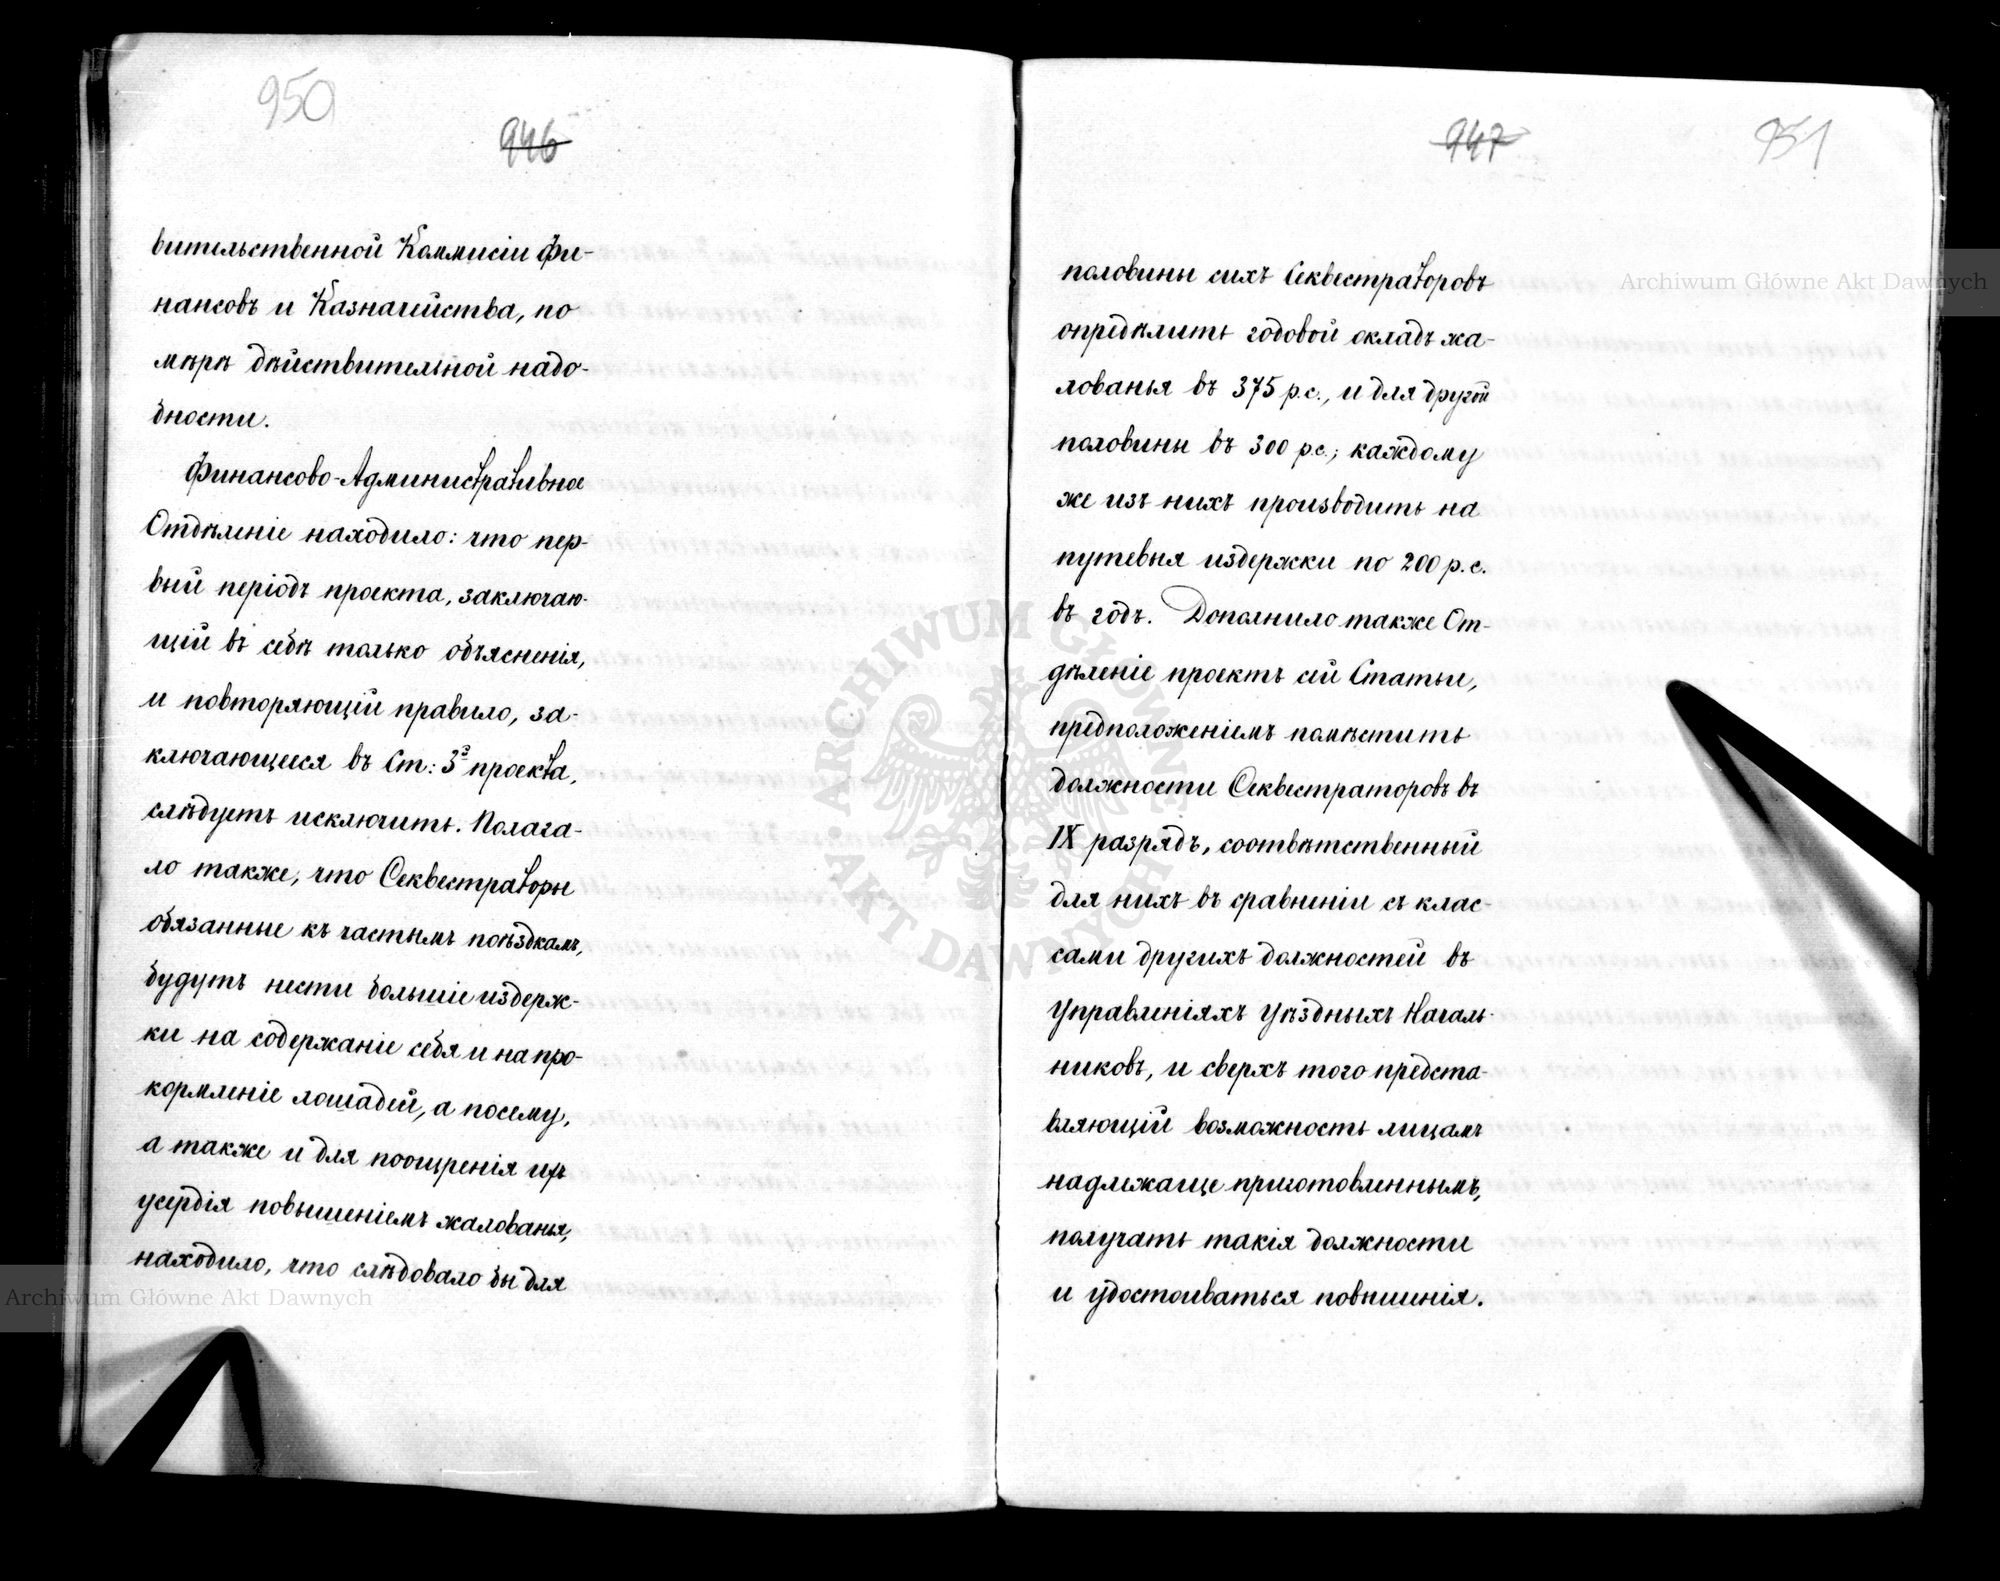 950
946
вительственной Коммисіи Фи-
нансовъ и Казначейства, по
мѣрѣ дѣйствительной надо-
бности.
Финансово-Административное
Отдѣленіе находило: что пер-
вый періодъ проекта, заключаю-
щій въ себѣ только объясненія,
и повторяющій правило, за-
ключающееся въ Ст: 3й проекта,
слѣдуетъ исключить. Полага-
ло также, что Секвестраторы
обязанные къ частымъ поѣздкамъ,
будутъ нести большіе издерж-
ки на содержаніе себя и на про-
кормленіе лошадей, а посему,
а также и для поощренія ихъ
усердія повышеніемъ жалованья,
находило, что слѣдовало бы для
947
951
половины сихъ Секвестраторовъ
опредѣлить годовой окладъ жа-
лованья въ 375 р.с., и для другой
половины въ 300 р.с.; каждому
же изъ нихъ производить на
путевыя издержки по 200 р.с.
въ годъ. Дополнило также От-
дѣленіе проектъ сей Статьи,
предположеніемъ помѣстить
должности Секвестраторовъ въ
IX разрядъ, соотвѣтственный
для нихъ въ сравненіи съ клас-
сами другихъ должностей въ
Управленіяхъ Уѣздныхъ Началь-
никовъ, и сверхъ того предста-
вляющій возможность лицамъ
надлежаще приготовленнымъ,
получать такія должности
и удостоиваться повышенія.
Archiwum Główne Akt Dawnych
ARCHIWUM GŁÓWNE AKT DAWNYCH
Archiwum Główne Akt Dawnych